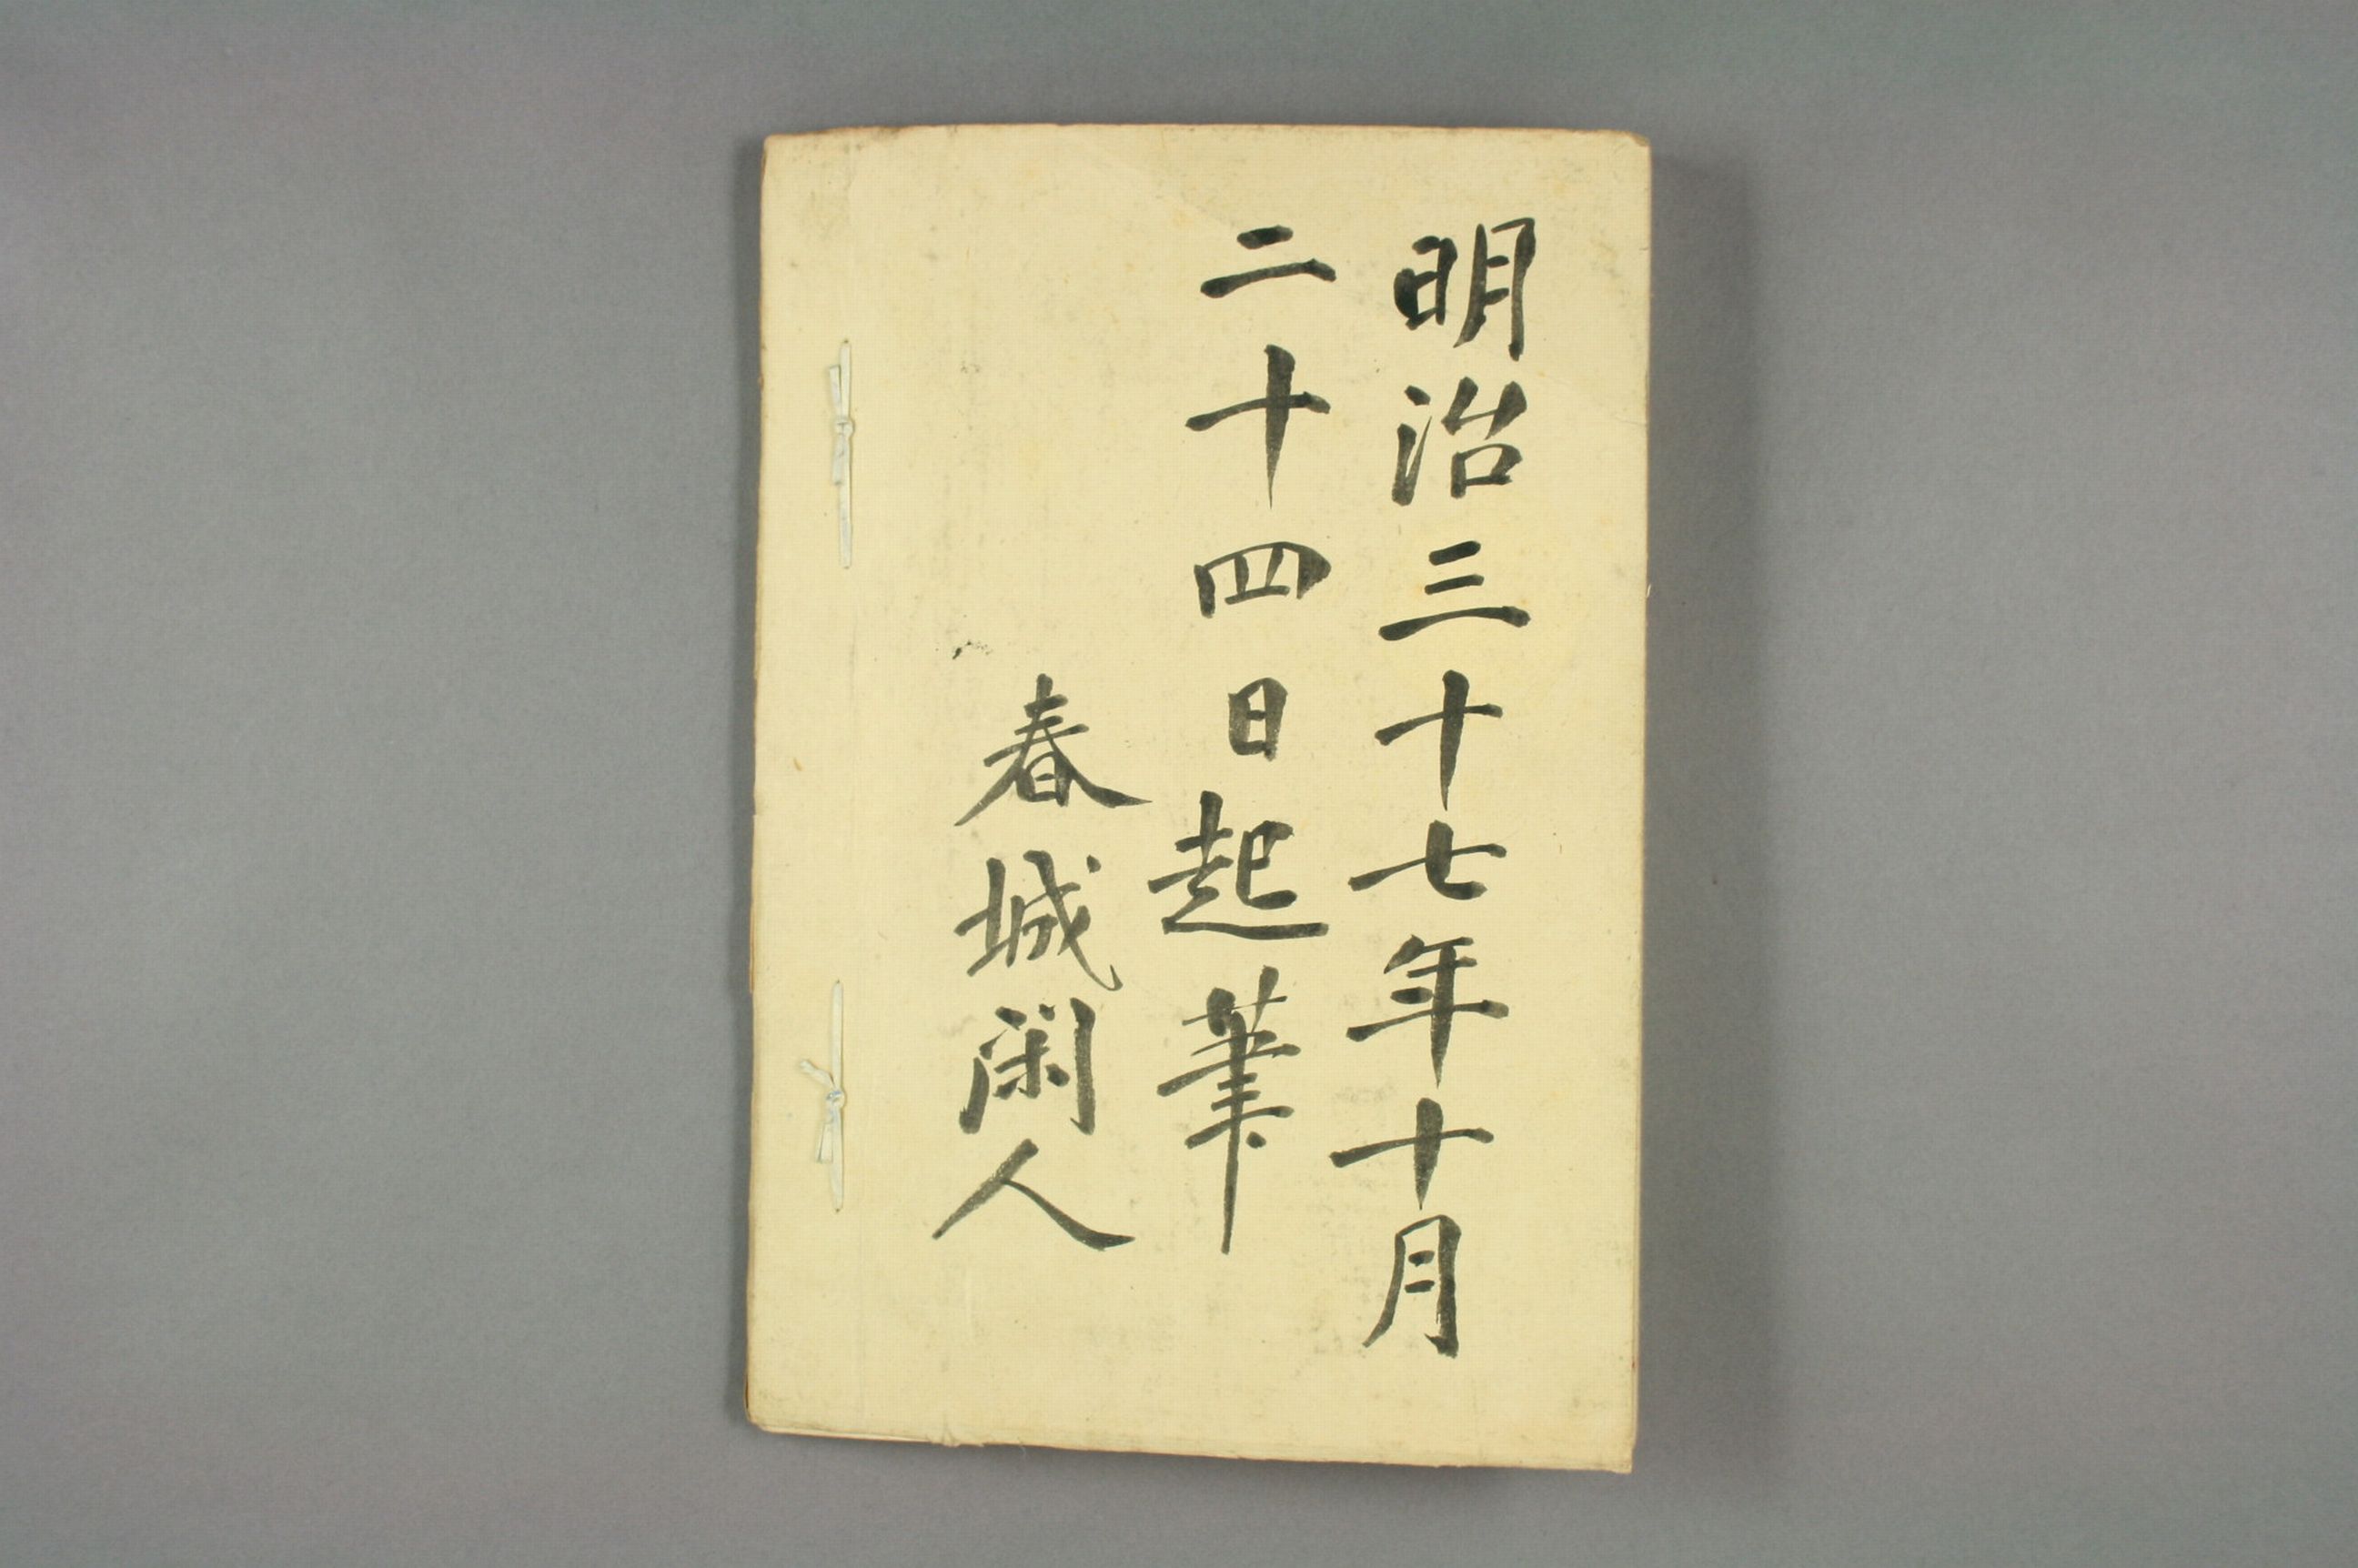 明治三十七年十月
二十四日起筆
春城閑人